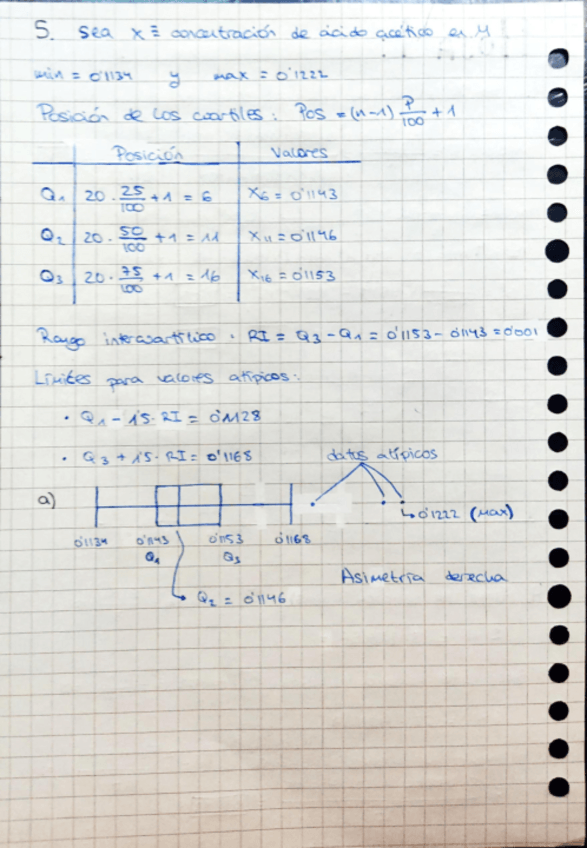 5. Sea x ≡ concentración de ácido acético en M
min = 0'1134 y max = 0'1222
Posición de los cuartiles: Pos = (n-1) P/100 + 1
Posición Valores
Q1 20 · 25/100 + 1 = 6 X6 = 0'1143
Q2 20 · 50/100 + 1 = 11 X11 = 0'1146
Q3 20 · 75/100 + 1 = 16 X16 = 0'1153
Rango intercuartílico · RI = Q3 - Q1 = 0'1153 - 0'1143 = 0'001
Límites para valores atípicos:
· Q1 - 1'5 · RI = 0'1128
· Q3 + 1'5 · RI = 0'1168
datos atípicos
a)
0'1222 (Max)
0'1134 0'1143 0'1153 0'1168
Q1 Q3
Asimetría derecha
Q2 = 0'1146